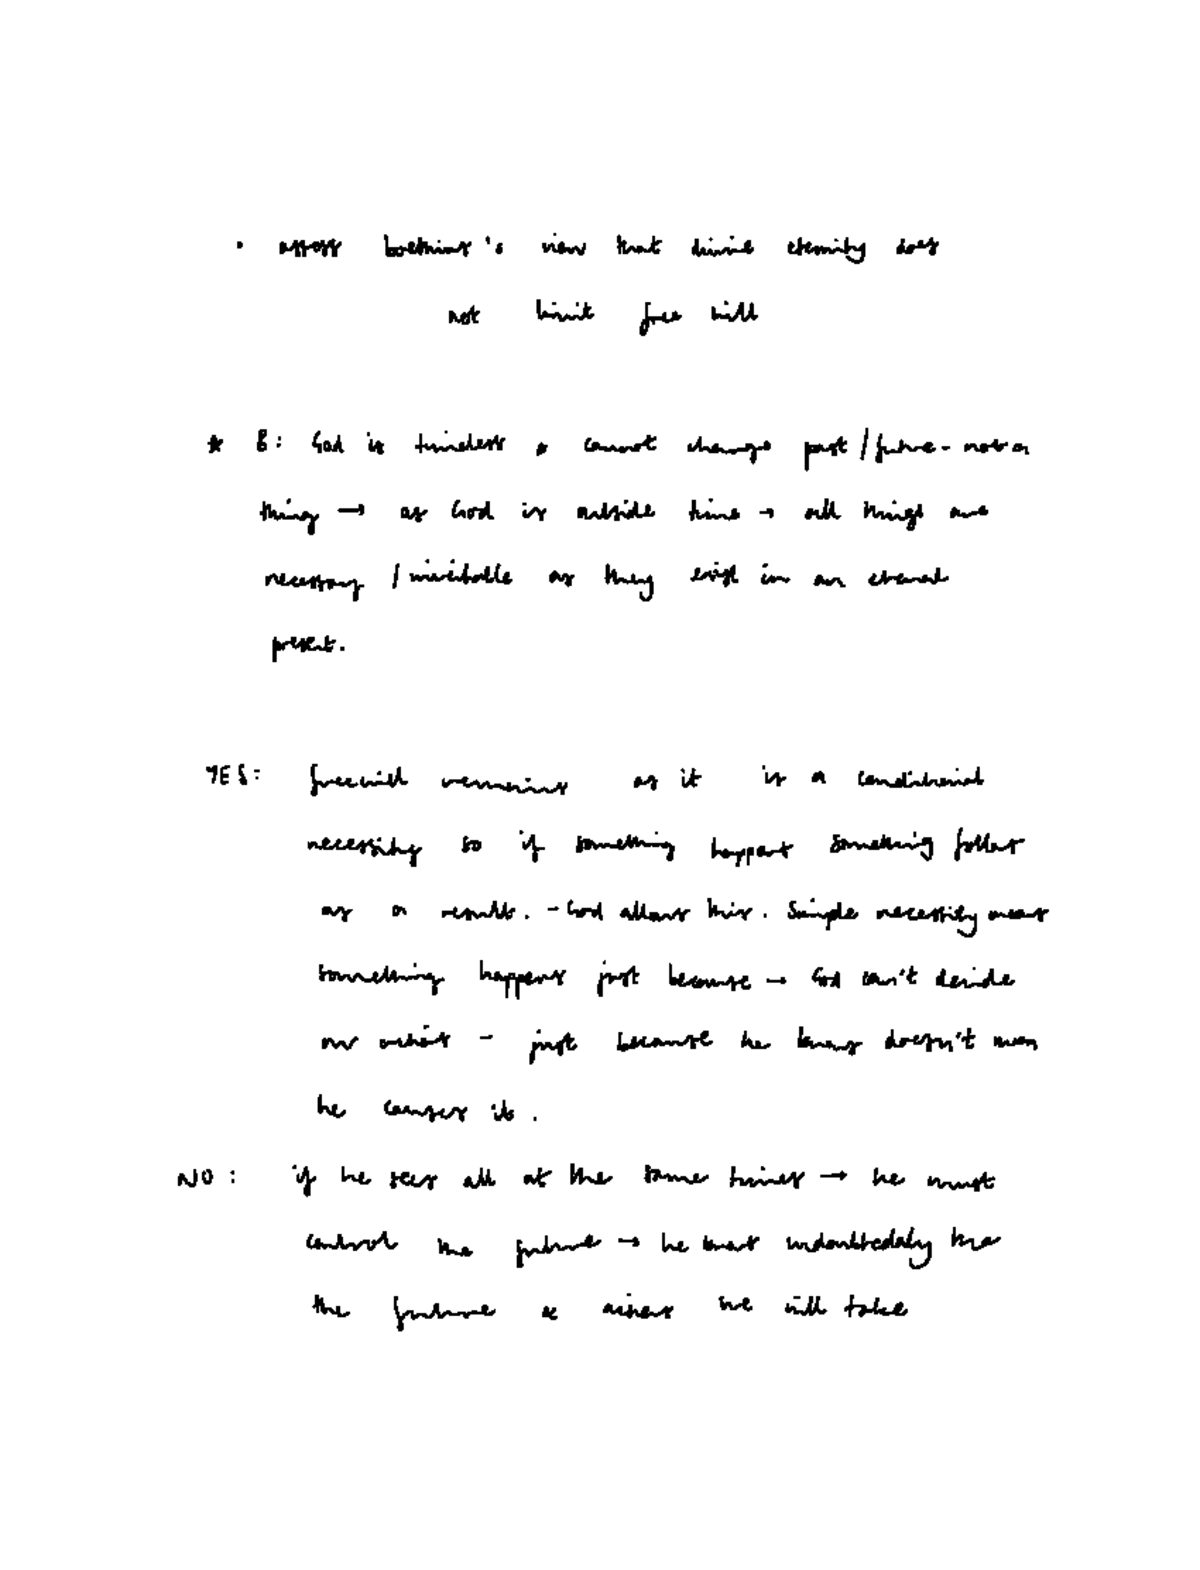 • assess boethius's view that divine eternity does
not limit free will
* B: God is timeless & cannot change past/future - not a
thing → as God is outside time → all things are
necessary / inevitable as they exist in an eternal
present.
YES: freewill remains as it is a conditional
necessity so if something happens something follows
as a result. - God allows this. Simple necessity means
something happens just because → God can't decide
our actions - just because he knows doesn't mean
he causes it.
NO: if he sees all at the same times → he must
control the future → he knows undoubtedly
the future & actions we will take